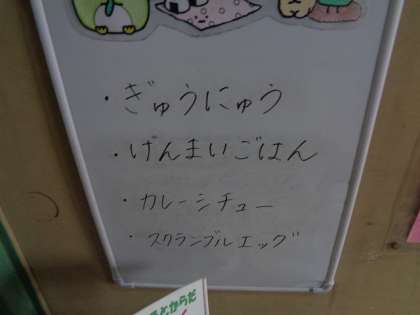 ・ぎゅうにゅう
・げんまいごはん
・カレーシチュー
・スクランブルエッグ
とからだ